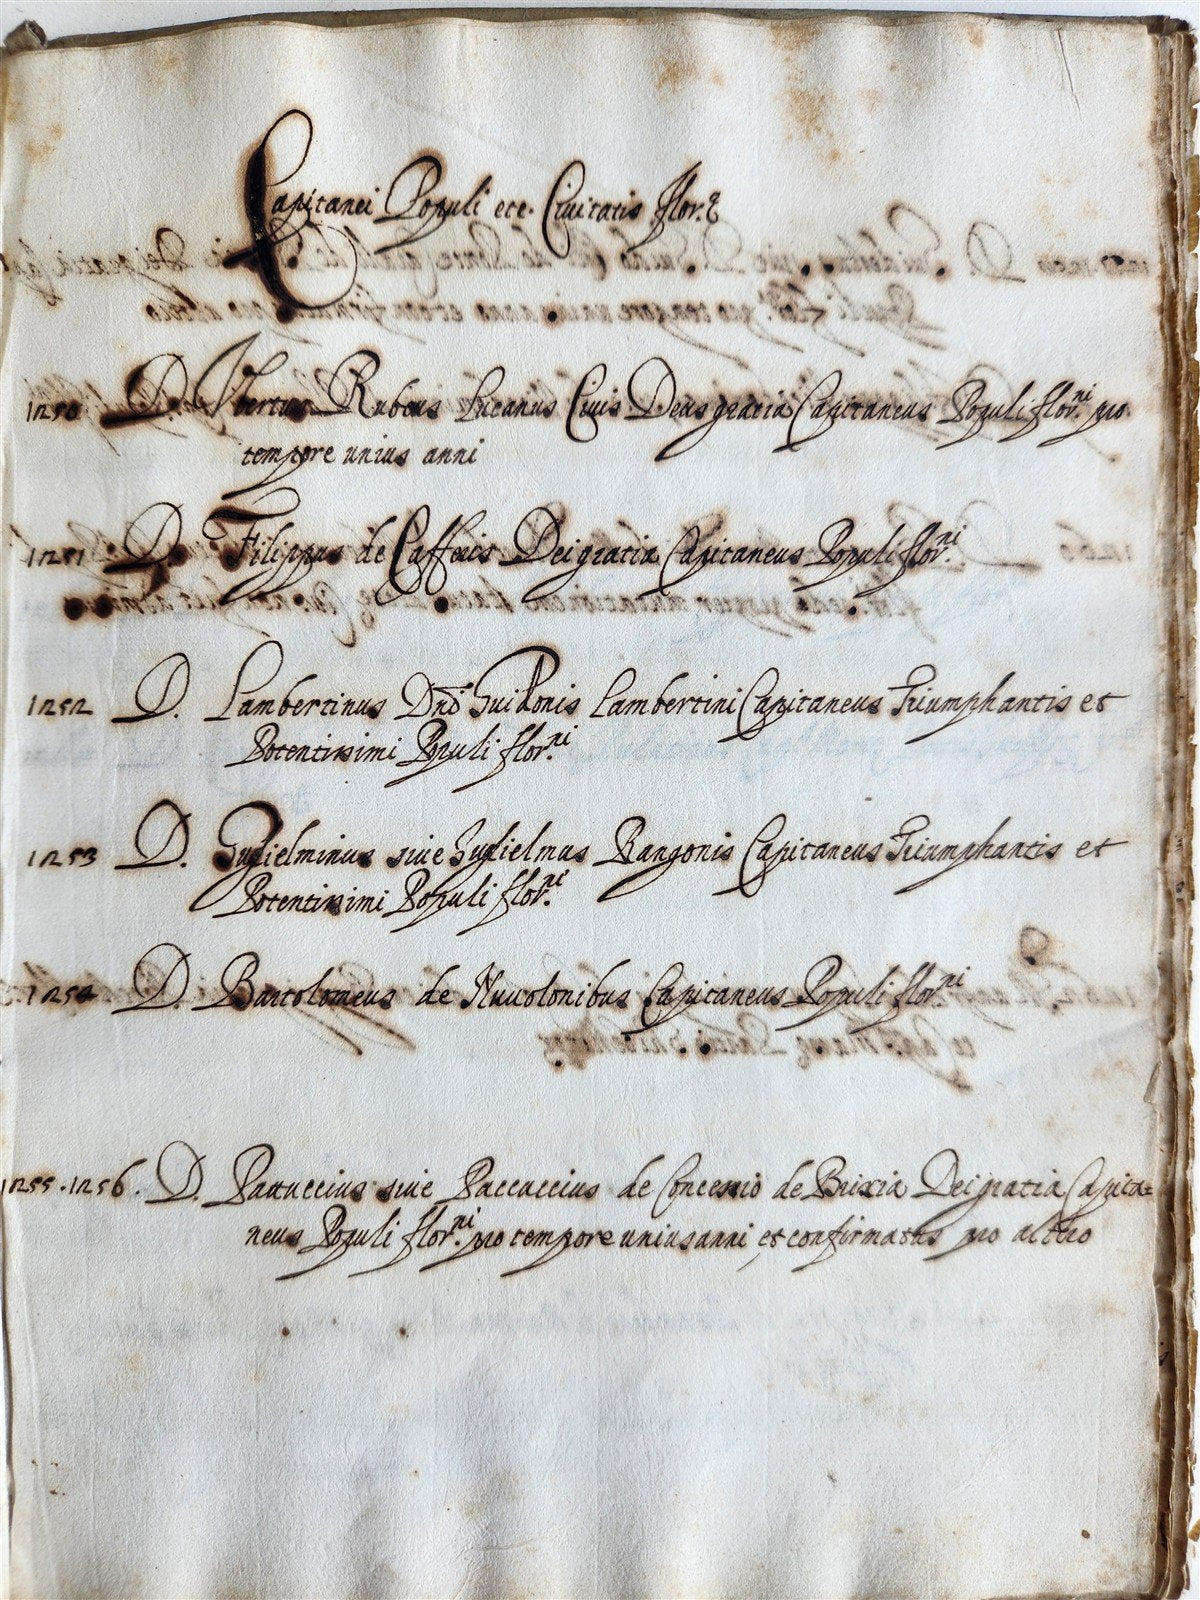 Capitanei Populi etc. Civitatis Flor.e
1250 D. Vbertus Rubeus Lucanus Civis Dei gratia Capitaneus Populi flor.ni pro
tempore unius anni
1251 D. Filippus de Cafferis Dei gratia Capitaneus Populi flor.ni
1252 D. Lambertinus Dni Guidonis Lambertini Capitaneus Triumphantis et
Potentissimi Populi flor.ni
1253 D. Guglielminus sive Guglielmus Rangonis Capitaneus Triumphantis et
Potentissimi Populi flor.ni
1254 D. Bartolomeus de Nuvolonibus Capitaneus Populi flor.ni
1255. 1256. D. sive Paccuccius de Concessio de Brixia Dei gratia Capita=
neus Populi flor.ni pro tempore unius anni, et confirmatus pro altro